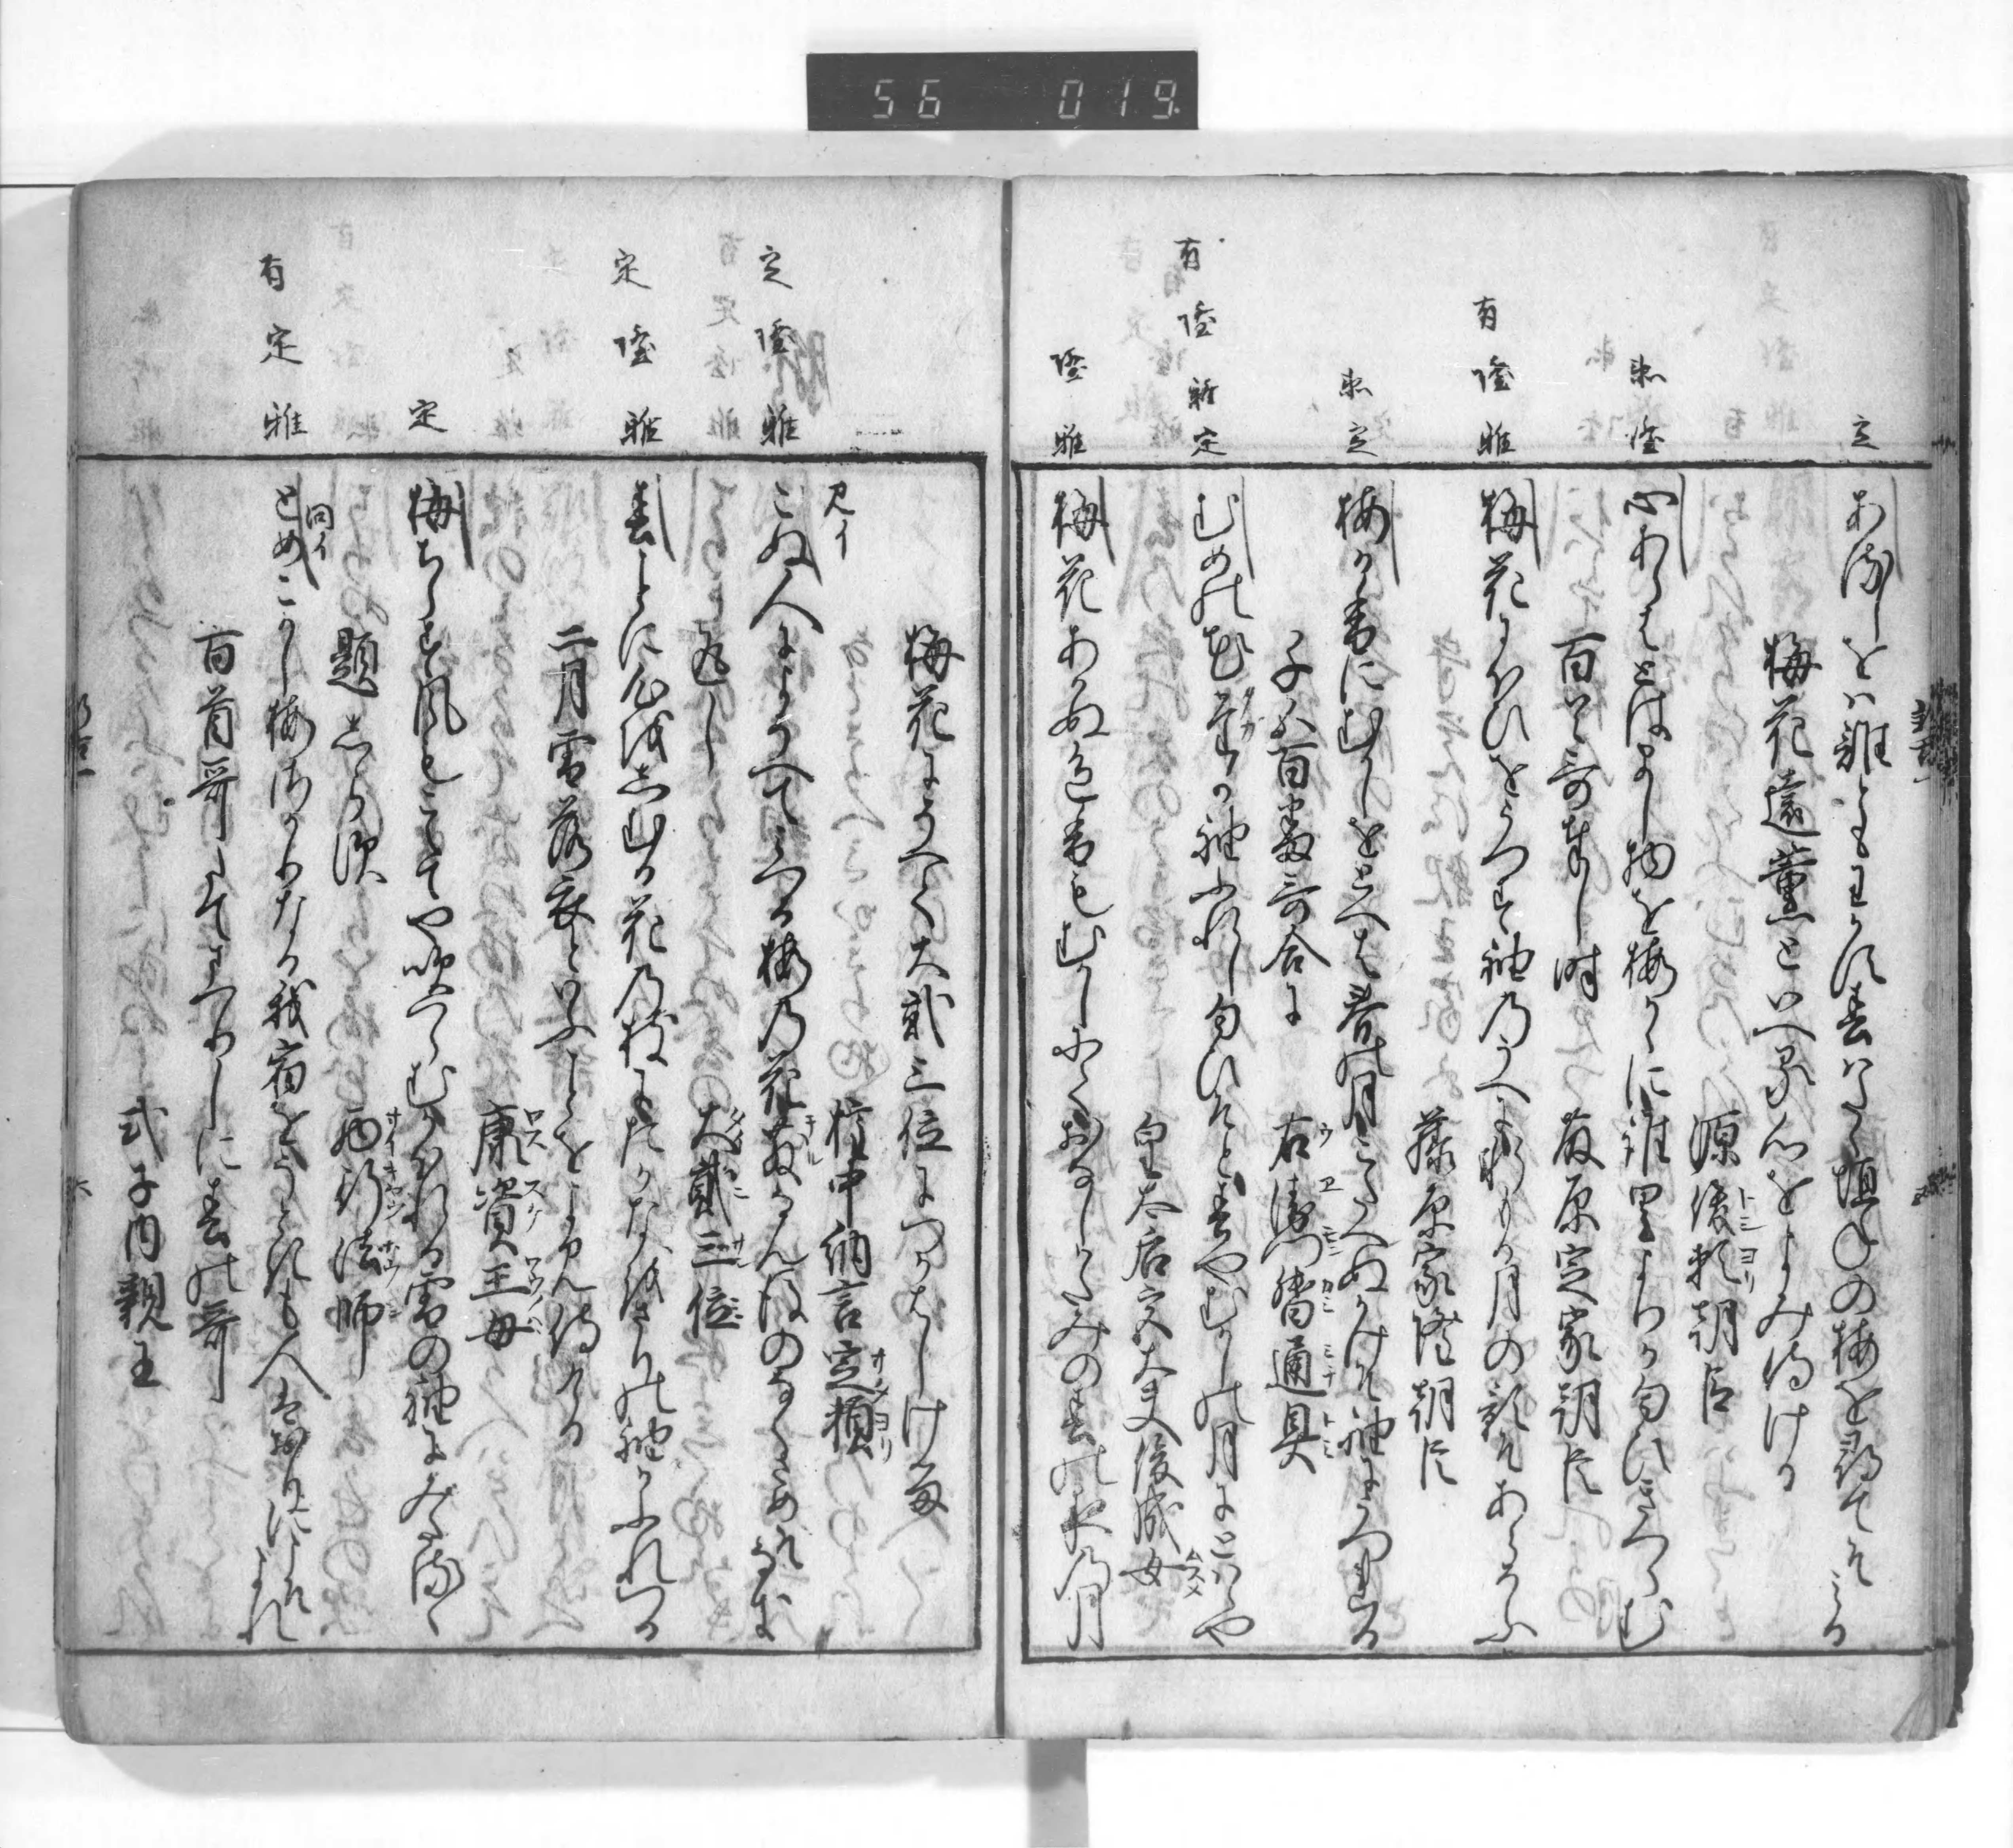 56 019
定
あるしをは誰ともわかす春はたゝ垣ねの梅を尋てそみる
梅花遠薫といへる心をよみ侍ける
源俊頼朝臣
トシヨリ
隆
心あらはとはまし物を梅かゝに誰里よりか匂ひきつらむ
百首哥奉し時
藤原定家朝臣
有 隆 雅
梅花にほひをうつす袖のうへに軒もる月の影そあらそふ
藤原家隆朝臣
定
梅か香にむかしをとへは春の月こたへぬかけそ袖にうつれる
千五百番哥合に
右衛門督通具
ウヱモンカミミチトモ
有 隆 雅 定
むめの花誰か袖ふれし匂ひそと春やむかしの月にとはゝや
タカ
皇太后宮大夫俊成女
ムスメ
隆 雅
梅花あかぬ色香もむかしにておなしかたみの春の夜の月
梅花にそへて大貳三位につかはしける
権中納言定頼
サタヨリ
定 隆 雅
見イ
こぬ人によそへてみつる梅の花散なん後のなくさめそなき
チリ
返し
大貳三位
タイニサンミ
定 隆 雅
春ことに心をしむる花の枝にたかなをさりの袖かふれつる
二月雪落衣といふことをよみ侍ける
康資王母
定
梅ちらす風もこえてや吹つらむかほれる雪の袖にみたるゝ
題しらす
西行法師
サイキヤウホウシ
有 定 雅
同イ
とめこかし梅さかりなる我宿をうときも人はおりにこそよれ
百首哥たてまつりしに春の哥
式子内親王
六